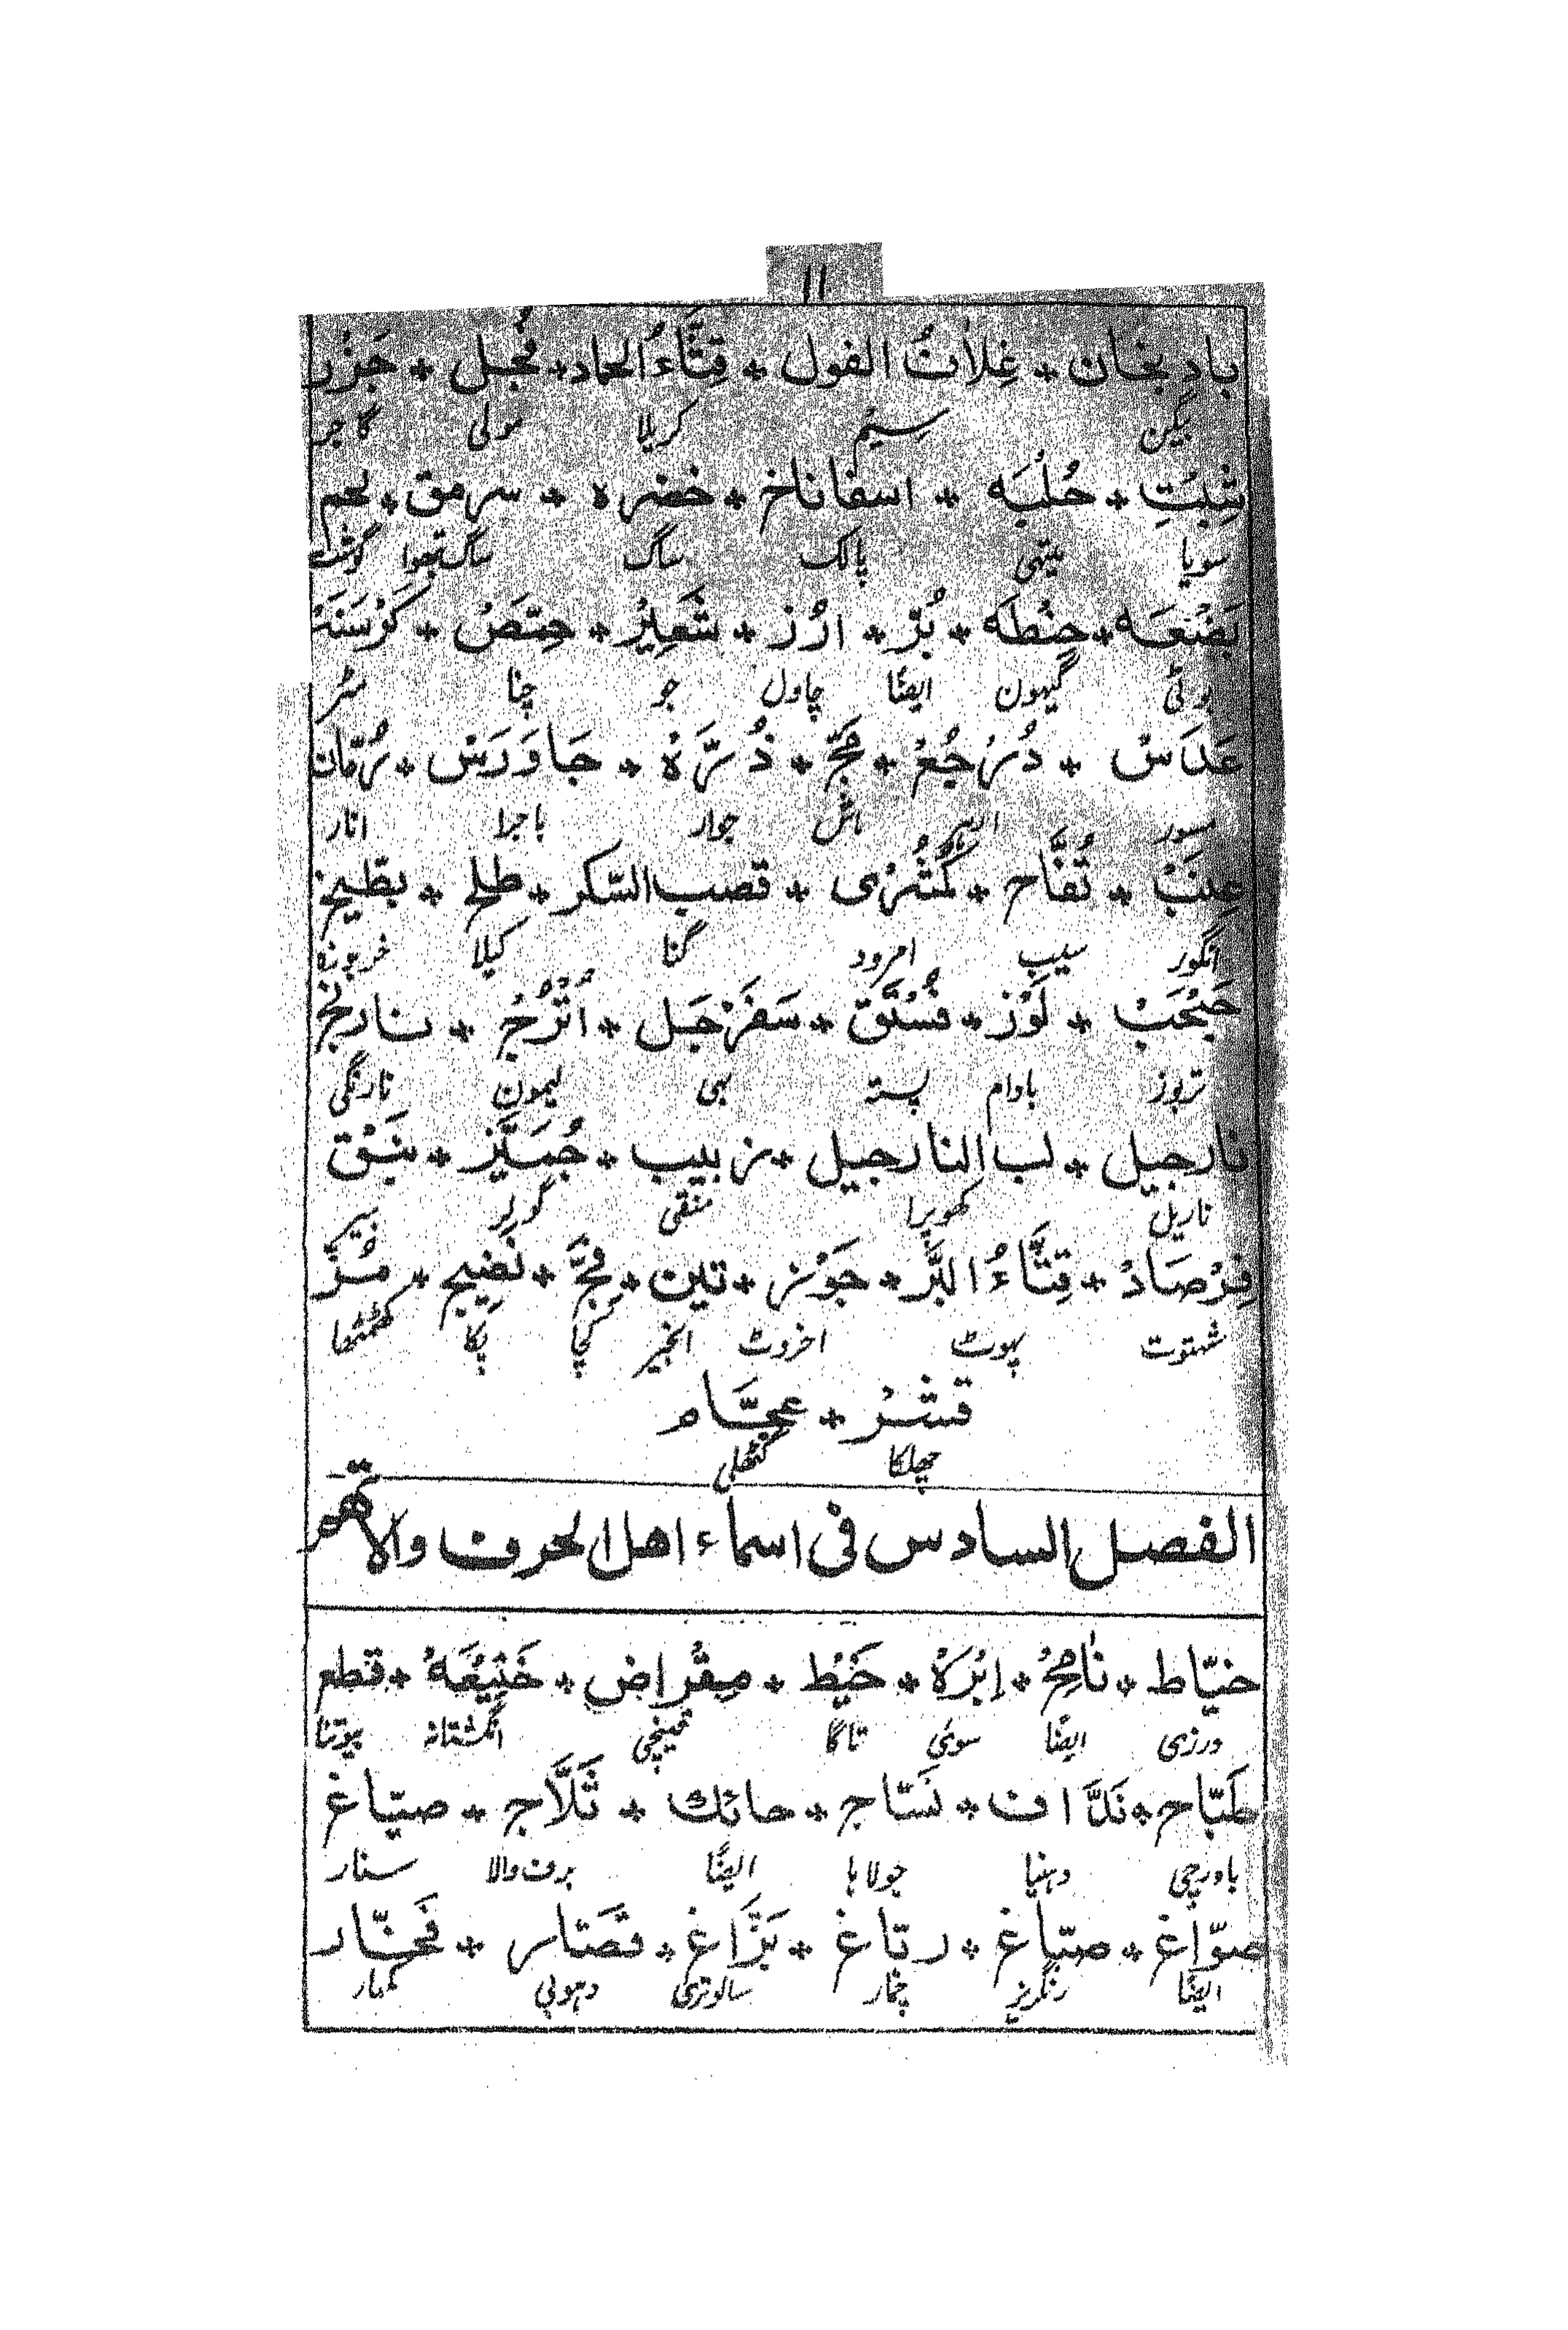 ۱۱
بادنجان * غِلَافُ الفول * قِثَّاءُ الحماد * فُجل * جَزَر
بیگن سیم کریلا مولی گاجر
شِبِتِ * حُلْبَه * اسفاناخ * خضره * سرمق * لحم
سویا میتھی پالک ساگ ساگ بتھوا گوشت
بَضْعَه * حِنْطَه * بُرّ * ارُز * شَعِیْر * حِمَّصْ * کَرْسَنَة
بوٹی گیہون ایضًا چاول جو چنا مٹر
عَدَاسْ * دُرْجُعْ * مَجّ * ذُرَّهْ * جَاوَرَسْ * رُمّان
مسور ارہر ماش جوار باجرا انار
عِنَبْ * تُفَّاح * کُمَّثْرٰی * قصب السّکر * طلح * بطیخ
انگور سیب امرود گنا کیلا خربوزہ
حَبْحَبْ * لَوْز * فُسْتَق * سَفَرْجَل * اُتْرُجْ * نارنج
تربوز بادام پستہ بہی لیمون نارنگی
نارجیل * لب النارجیل * زبیب * جُمَّیْز * نَبْق
ناریل کھوپرا منقی گولر بیر
فِرْصَادْ * قِثَّاءُ البَّر * جَوْز * تین * فِجّ * نَضِیج * مُزّ
شہتوت پہوٹ اخروٹ انجیر کچا پکا کھٹمٹھا
قشْر * عجَّام
چھلکا گٹھلی
الفصل السادس فی اسماء اهل الحرف والاتهم
خیّاط * نَامِحُ * اِبْرَهْ * خَیْط * مِقْراض * خَتِیْعَهْ * قطع
درزی ایضًا سوئی تاگا قینچی انگشتانہ بیوتنا
طَبّاح * نَدَّاف * نَسّاج * حائک * ثَلَّاج * صیّاغ
باورچی دہنیا جولاہا ایضًا برف والا سنار
صوّاغ * صبّاغ * دبّاغ * بَزَّاغ * قَصّار * فَخّار
ایضًا رنگریز چمار سالوتری دہوبی کمہار